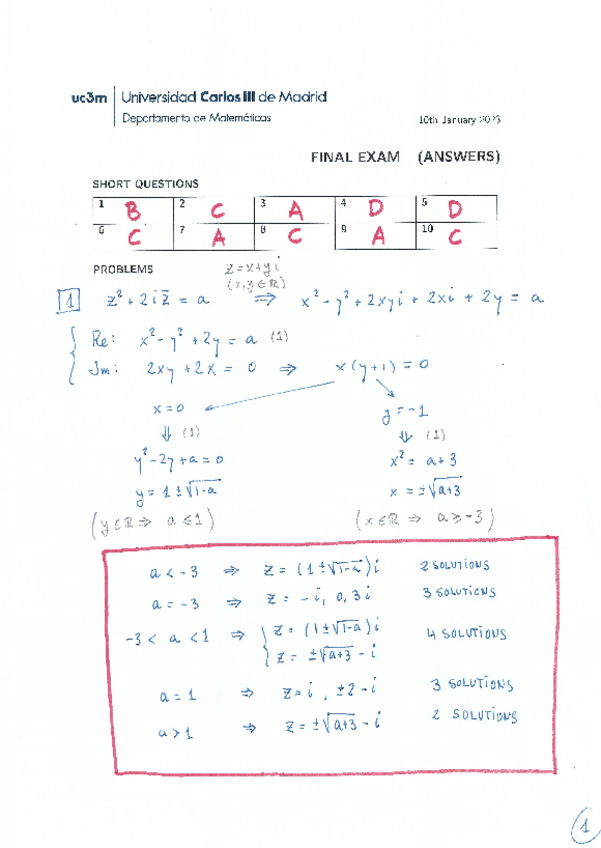 uc3m | Universidad Carlos III de Madrid
Departamento de Matemáticas
10th January 2023
FINAL EXAM (ANSWERS)
SHORT QUESTIONS
1 B 2 C 3 A 4 D 5 D
6 C 7 A 8 C 9 A 10 C
PROBLEMS
z=x+yi
(x,y∈ℝ)
1 z²+2i z̄ = a ⇒ x²-y²+2xyi+2xi+2y = a
Re: x²-y²+2y = a (1)
Im: 2xy+2x = 0 ⇒ x(y+1)=0
x=0 y=-1
⇓ (1) ⇓ (1)
y²-2y+a=0 x² = a+3
y=1±√1-a x = ±√a+3
(y∈ℝ ⇒ a≤1) (x∈ℝ ⇒ a≥-3)
a<-3 ⇒ z=(1±√1-a)i 2 SOLUTIONS
a=-3 ⇒ z= -i, 0, 3i 3 SOLUTIONS
-3<a<1 ⇒ { z=(1±√1-a)i 4 SOLUTIONS
z= ±√a+3 - i
a=1 ⇒ z=i, ±2-i 3 SOLUTIONS
a>1 ⇒ z=±√a+3 - i 2 SOLUTIONS
1